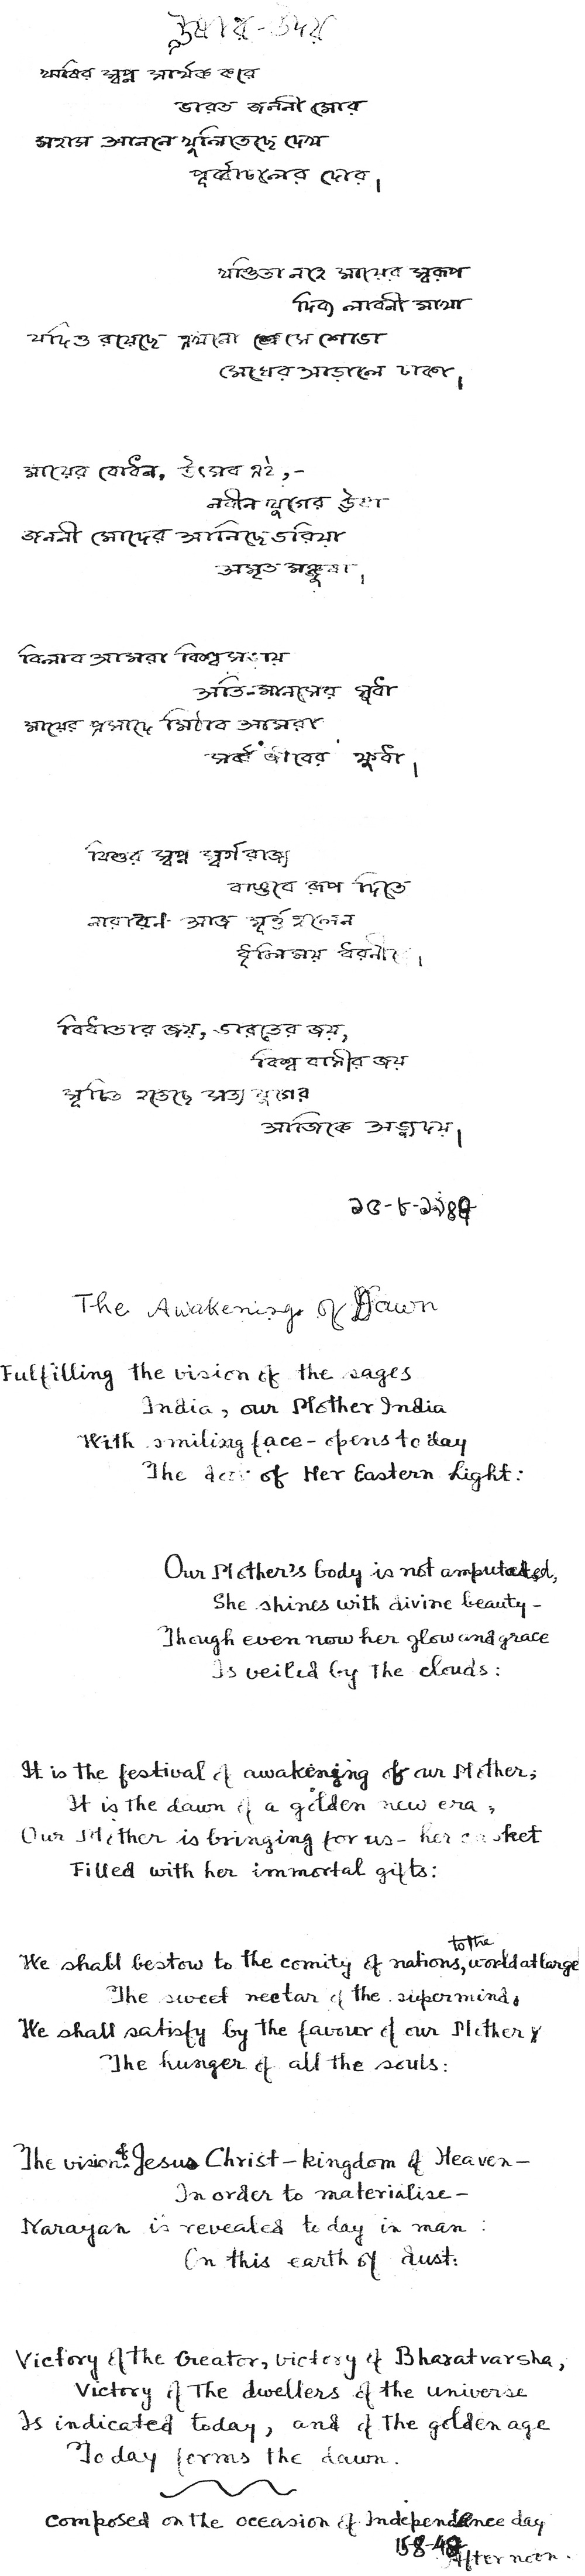 ঊষার-উদয়
ঋষির স্বপ্ন সার্থক করে
ভারত জননী মোর
সহাস আননে খুলিতেছে দেখ
পূর্ব্বাচলের দোর।
খণ্ডিতা নহে মায়ের স্বরূপ
দিব্য লাবনী মাখা
যদিও রয়েছে এখনো সে শোভা
মেঘের আড়ালে ঢাকা।
মায়ের বোধন, উৎসব এই,-
নবীন যুগের ঊষা
জননী মোদের আনিছে ভরিয়া
অমৃত মঞ্জুষা।
বিলাব আমরা বিশ্বসভায়
অতি-মানসের সুধা
মায়ের প্রসাদে মিটাব আমরা
সর্ব্ব জীবের ক্ষুধা।
যিশুর স্বপ্ন স্বর্গ রাজ্য
বাস্তবে রূপ দিতে
নারায়ণ আজ মূর্ত্ত হলেন
ধূলিময় ধরনীতে।
বিধাতার জয়, ভারতের জয়,
বিশ্ব বাসীর জয়
সূচিত হতেছে সত্য যুগের
আজিকে অভ্যুদয়।
১৫-৮-১৯৪৭
The Awakening of Dawn
Fulfilling the vision of the sages
India, our Mother India
With smiling face - opens today
The door of Her Eastern Light:
Our Mother's body is not amputated,
She shines with divine beauty -
Though even now her glow and grace
Is veiled by the clouds:
It is the festival of awakening of our Mother;
It is the dawn of a golden new era;
Our Mother is bringing for us - her casket
Filled with her immortal gifts:
We shall bestow to the comity of nations, to the world at large
The sweet nectar of the supermind,
We shall satisfy by the favour of our Mother
The hunger of all the souls:
The vision of Jesus Christ - kingdom of Heaven -
In order to materialise -
Narayan is revealed today in man:
On this earth of dust:
Victory of the Creator, victory of Bharatvarsha,
Victory of The dwellers of the universe
Is indicated today, and of the golden age
Today forms the dawn.
Composed on the occasion of Independence day
15-8-47
Afternoon.